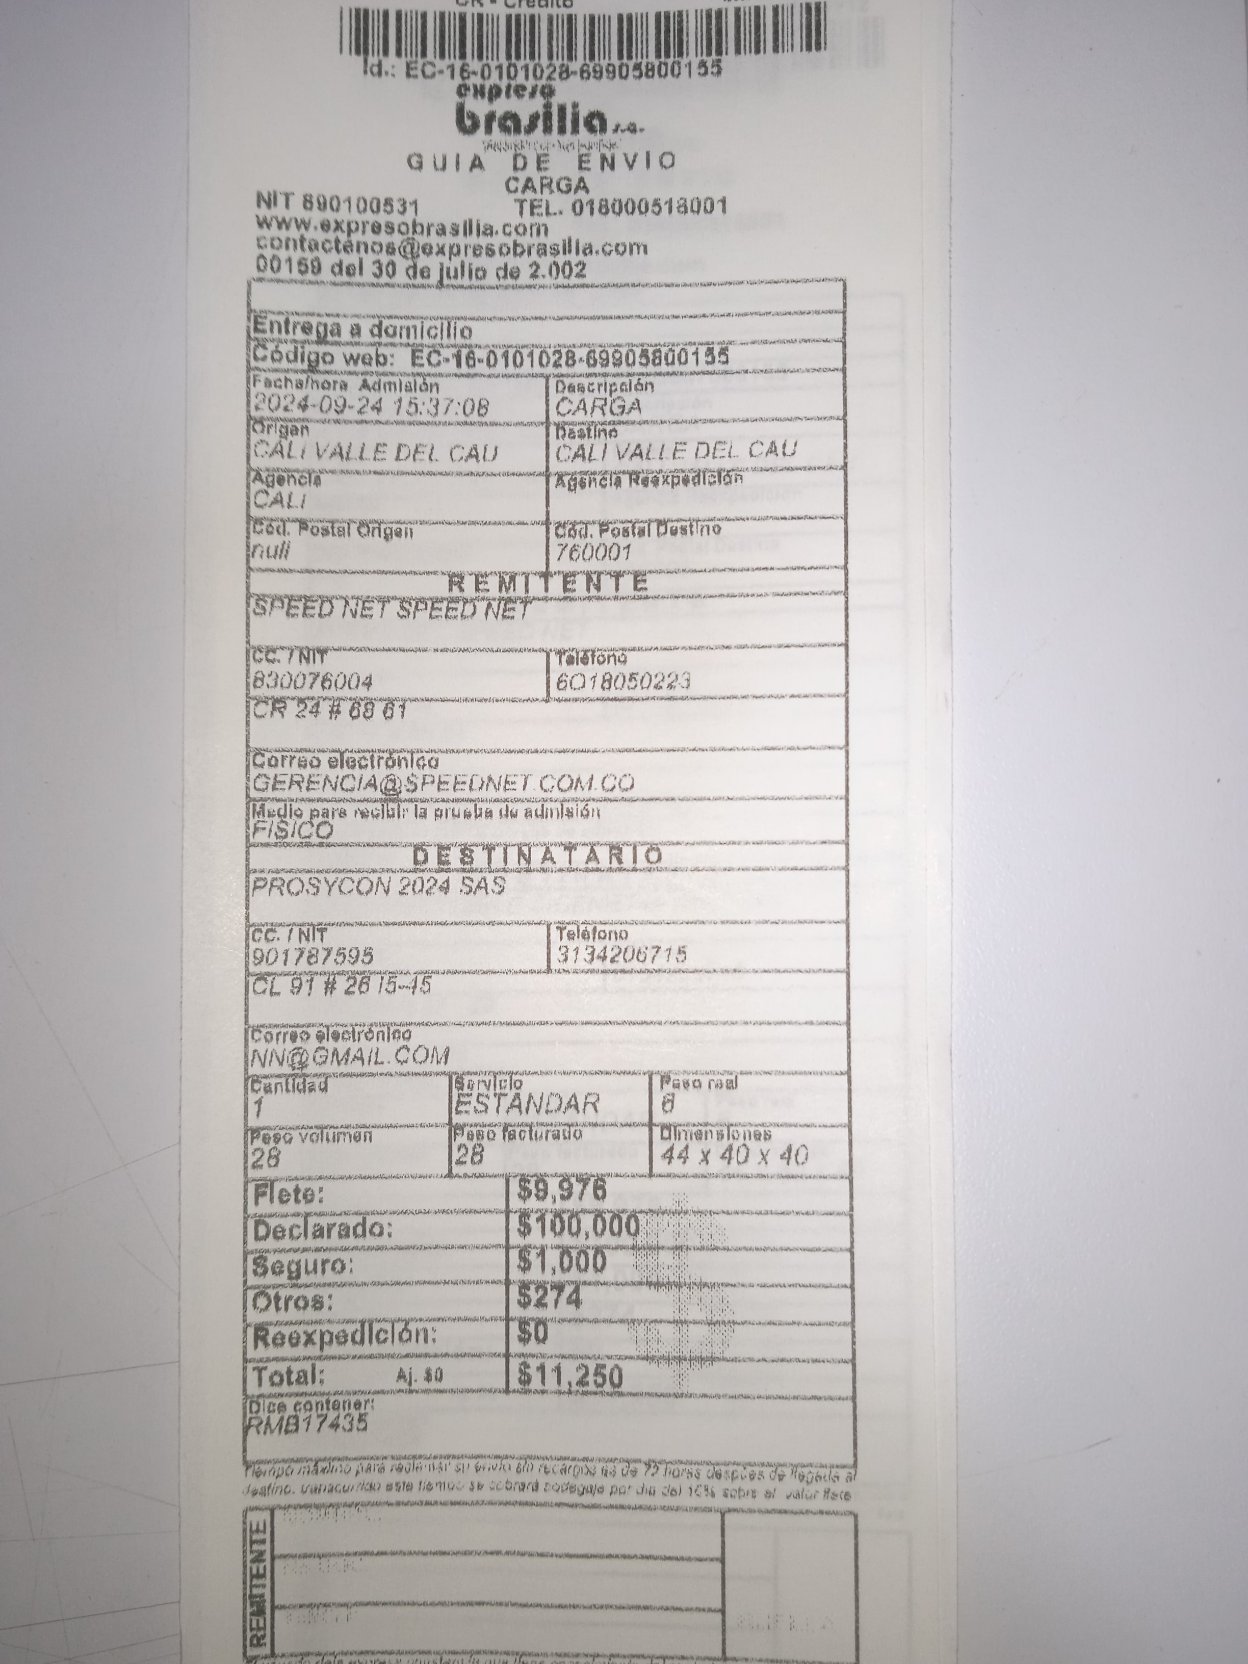 CR - Crédito
Id.: EC-16-0101028-69905800155
expreso
brasilia s.a.
GUIA DE ENVIO
CARGA
NIT 890100531 TEL. 018000518001
www.expresobrasilia.com
contactenos@expresobrasilia.com
00159 del 30 de julio de 2.002
Entrega a domicilio
Código web: EC-16-0101028-69905800155
Fecha/hora Admisión Descripción
2024-09-24 15:37:08 CARGA
Origen Destino
CALI VALLE DEL CAU CALI VALLE DEL CAU
Agencia Agencia Reexpedición
CALI
Cód. Postal Origen Cód. Postal Destino
null 760001
REMITENTE
SPEED NET SPEED NET
CC. / NIT Teléfono
830076004 6018050223
CR 24 # 68 61
Correo electrónico
GERENCIA@SPEEDNET.COM.CO
Medio para recibir la prueba de admisión
FISICO
DESTINATARIO
PROSYCON 2024 SAS
CC. / NIT Teléfono
901787595 3134206715
CL 91 # 26 I5-45
Correo electrónico
NN@GMAIL.COM
Cantidad Servicio Peso real
1 ESTANDAR 6
Peso volumen Peso facturado Dimensiones
28 28 44 x 40 x 40
Flete: $9,976
Declarado: $100,000
Seguro: $1,000
Otros: $274
Reexpedición: $0
Total: Aj. $0 $11,250
Dice contener:
RMB17435
Tiempo máximo para reclamar su envío sin recargos es de 72 horas después de llegada al
destino, transcurrido este tiempo se cobrará bodegaje por día del 10% sobre el valor flete
REMITENTE